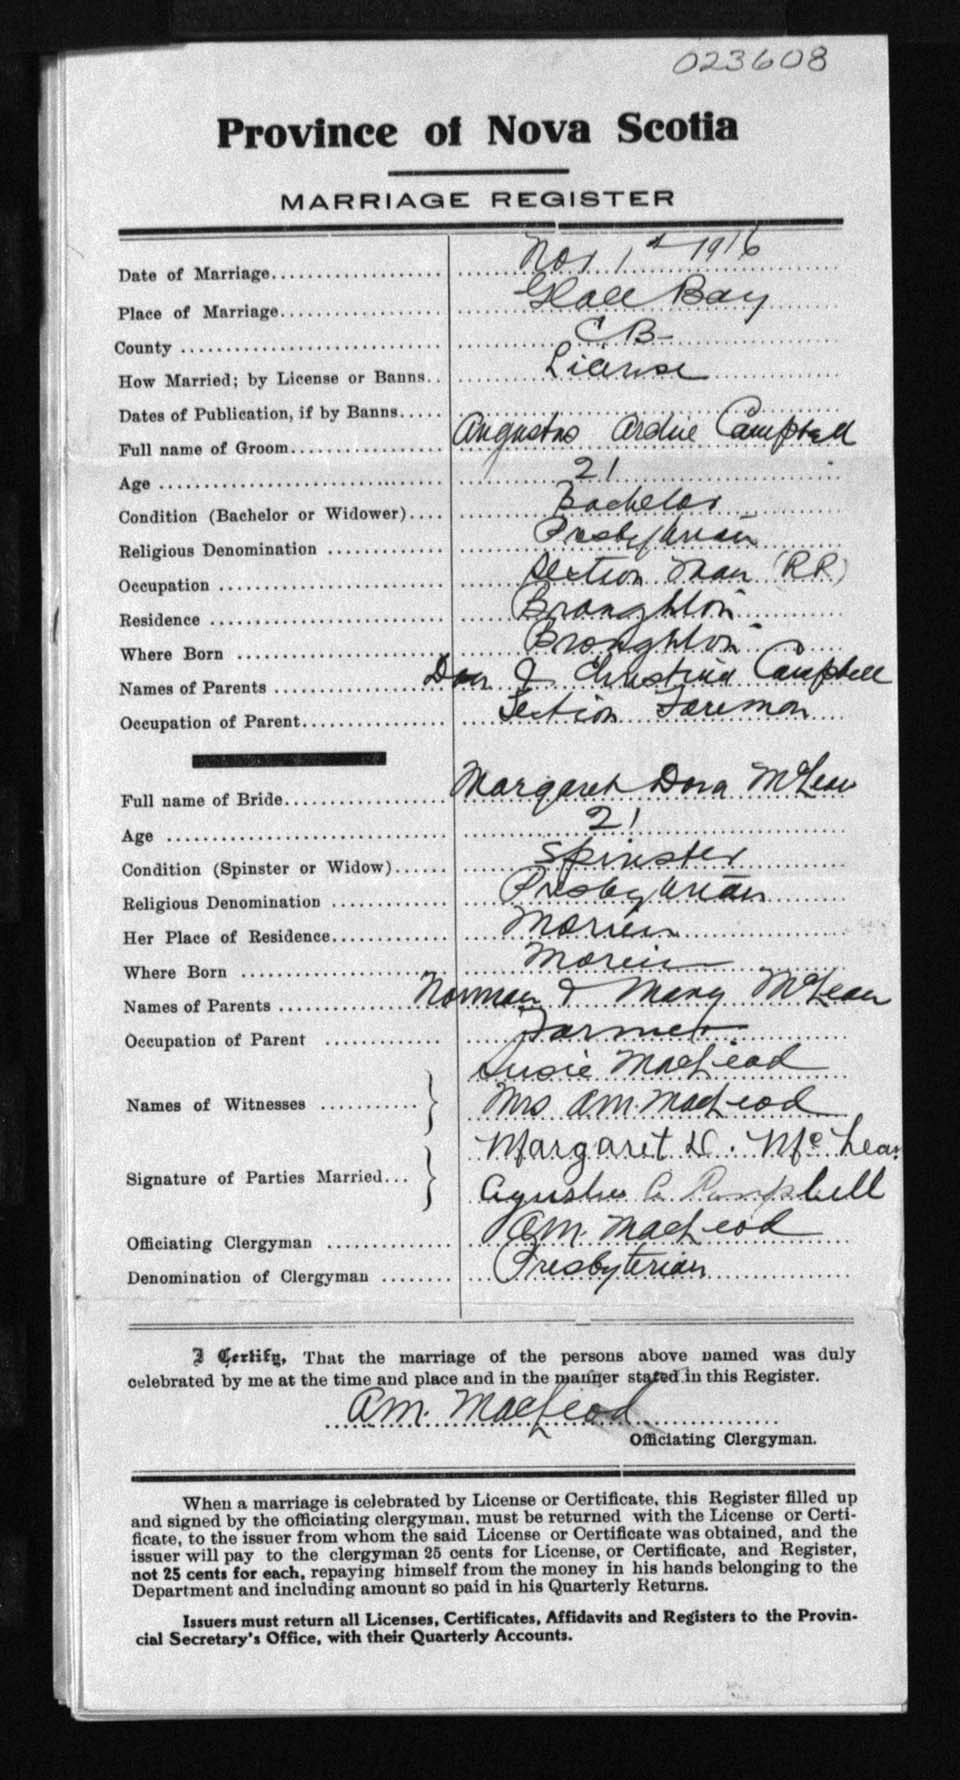 023608
Province of Nova Scotia
MARRIAGE REGISTER
Date of Marriage.................... Nov 1st 1916
Place of Marriage................... Glace Bay
County ............................. C B
How Married; by License or Banns.. License
Dates of Publication, if by Banns.....
Full name of Groom................. Angustus Archie Campbell
Age ................................ 21
Condition (Bachelor or Widower).... Bachelor
Religious Denomination ............. Presbyterian
Occupation ......................... Section Man (R.R.)
Residence .......................... Broughton
Where Born ......................... Broughton
Names of Parents ................... Dan J Christina Campbell
Occupation of Parent................ Section Foreman
Full name of Bride.................. Margaret Dora McLean
Age ................................ 21
Condition (Spinster or Widow)...... Spinster
Religious Denomination ............. Presbyterian
Her Place of Residence............. Morien
Where Born ......................... Morien
Names of Parents ................... Norman & Mary McLean
Occupation of Parent ............. Farmer
Susie MacLeod
Names of Witnesses ........... Mrs A.M. MacLeod
Margaret D. McLean
Signature of Parties Married...
Agustus A Campbell
Officiating Clergyman .............. A.M. MacLeod
Denomination of Clergyman ........ Presbyterian
I Certify, That the marriage of the persons above named was duly
celebrated by me at the time and place and in the manner stated in this Register.
A.M. MacLeod
Officiating Clergyman.
When a marriage is celebrated by License or Certificate, this Register filled up
and signed by the officiating clergyman, must be returned with the License or Certi-
ficate, to the issuer from whom the said License or Certificate was obtained, and the
issuer will pay to the clergyman 25 cents for License, or Certificate, and Register,
not 25 cents for each, repaying himself from the money in his hands belonging to the
Department and including amount so paid in his Quarterly Returns.
Issuers must return all Licenses, Certificates, Affidavits and Registers to the Provin-
cial Secretary's Office, with their Quarterly Accounts.